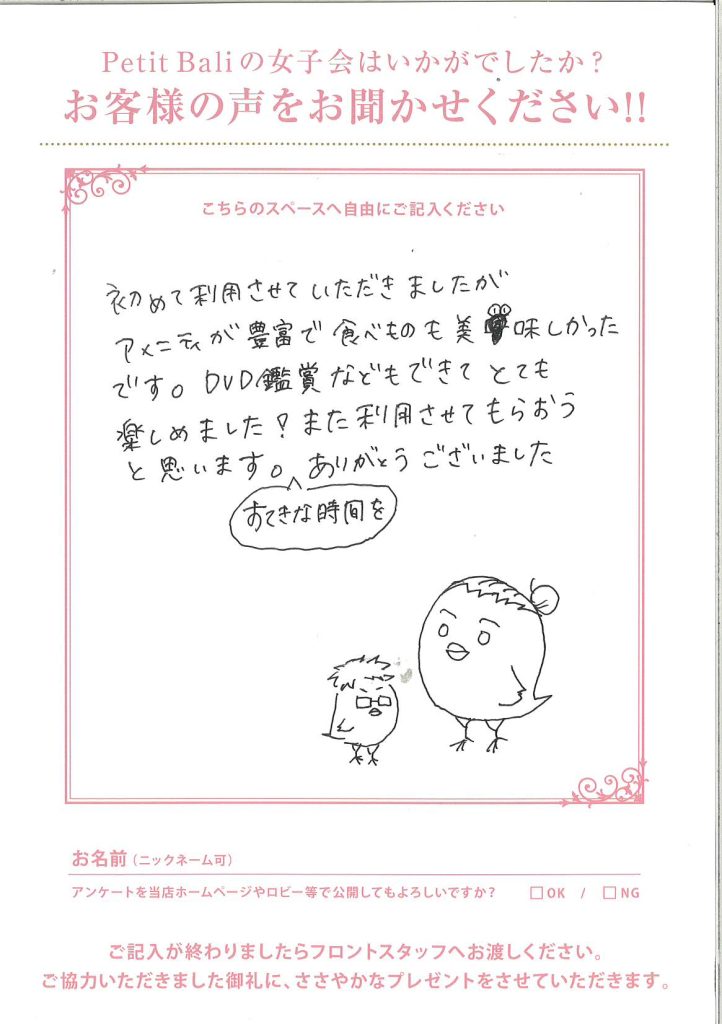 Petit Baliの女子会はいかがでしたか？
お客様の声をお聞かせください!!
こちらのスペースへ自由にご記入ください
初めて利用させていただきましたが
アメニティが豊富で食べものも美味しかった
です。DVD鑑賞などもできてとても
楽しめました！また利用させてもらおう
と思います。ありがとうございました
すてきな時間を
お名前（ニックネーム可）
アンケートを当店ホームページやロビー等で公開してもよろしいですか？ □OK / □NG
ご記入が終わりましたらフロントスタッフへお渡しください。
ご協力いただきました御礼に、ささやかなプレゼントをさせていただきます。